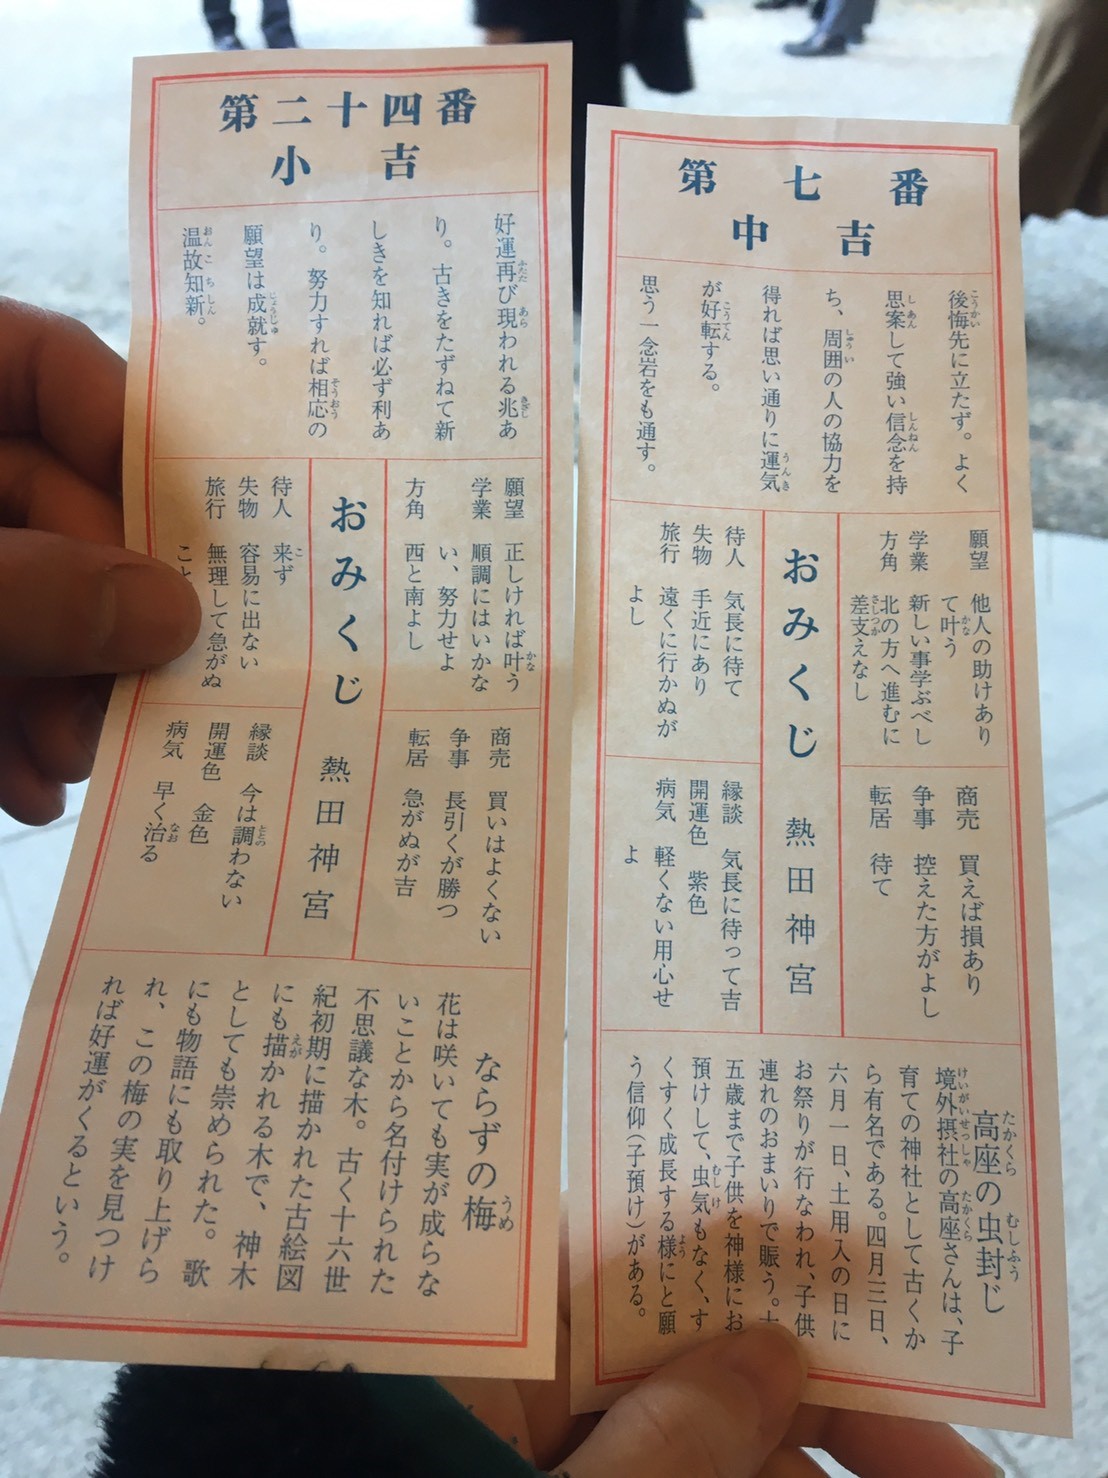 第二十四番
小吉
好運再び現われる兆あ
り。古きをたずねて新
しきを知れば必ず利あ
り。努力すれば相応の
願望は成就す。
温故知新。
願望 正しければ叶う
学業 順調にはいかな
い、努力せよ
方角 西と南よし
おみくじ 熱田神宮
待人 来ず
失物 容易に出ない
旅行 無理して急がぬ
こと
商売 買いはよくない
争事 長引くが勝つ
転居 急がぬが吉
縁談 今は調わない
開運色 金色
病気 早く治る
ならずの梅
花は咲いても実が成らな
いことから名付けられた
不思議な木。古く十六世
紀初期に描かれた古絵図
にも描かれる木で、神木
としても崇められた。歌
にも物語にも取り上げら
れ、この梅の実を見つけ
れば好運がくるという。
第七番
中吉
後悔先に立たず。よく
思案して強い信念を持
ち、周囲の人の協力を
得れば思い通りに運気
が好転する。
思う一念岩をも通す。
願望 他人の助けあり
て叶う
学業 新しい事学ぶべし
方角 北の方へ進むに
差支えなし
おみくじ 熱田神宮
待人 気長に待て
失物 手近にあり
旅行 遠くに行かぬが
よし
商売 買えば損あり
争事 控えた方がよし
転居 待て
縁談 気長に待って吉
開運色 紫色
病気 軽くない用心せ
よ
高座の虫封じ
境外摂社の高座さんは、子
育ての神社として古くか
ら有名である。四月三日、
六月一日、土用入の日に
お祭りが行なわれ、子供
連れのおまいりで賑う。
五歳まで子供を神様にお
預けして、虫気もなく、す
くすく成長する様にと願
う信仰(子預け)がある。